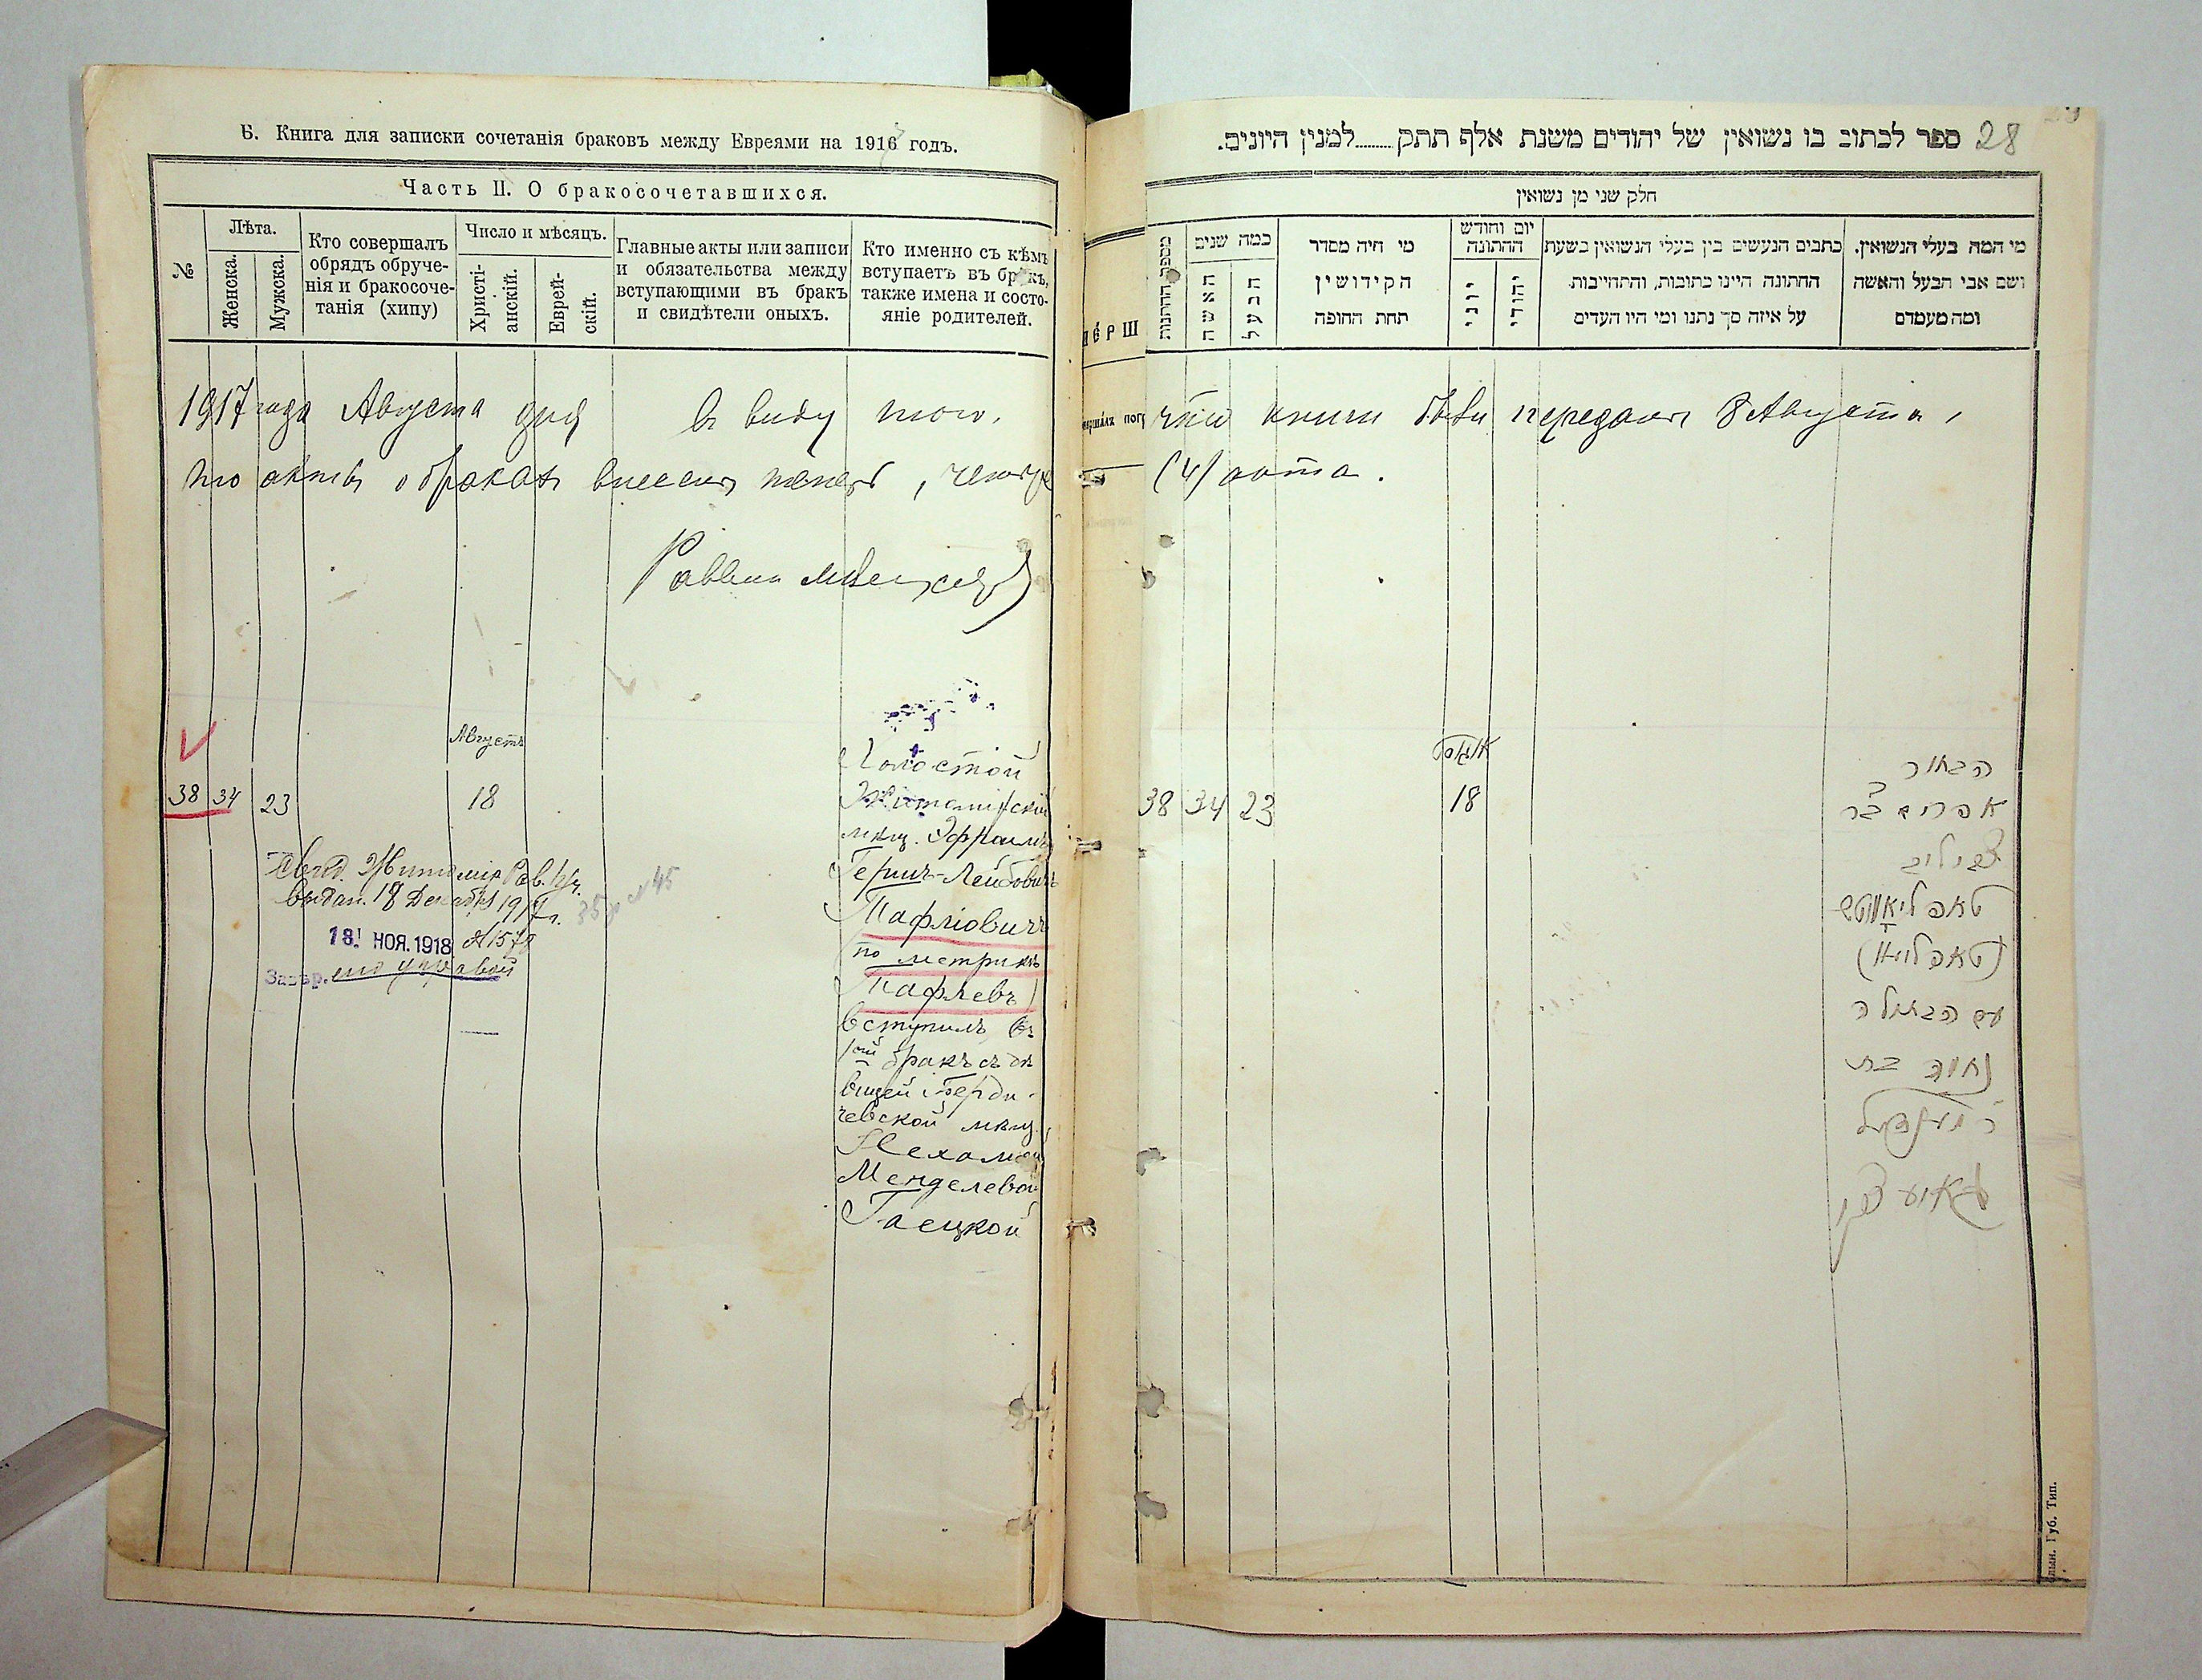 Б. Книга для записки сочетанія браковъ между Евреями на 1916 годъ.
Часть II. О бракосочетавшихся.
№
Лѣта.
Женска.
Мужска.
Кто совершалъ
обрядъ обруче-
нія и бракосоче-
танія (хипу)
Число и мѣсяцъ.
Христі-
анскій.
Еврей-
скій.
Главные акты или записи
и обязательства между
вступающими въ бракъ
и свидѣтели оныхъ.
Кто именно съ кѣмъ
вступаетъ въ бракъ,
также имена и состо-
яніе родителей.
1917 года Августа дня въ виду того,
что акты о бракахъ внесены
Раввин
Августъ
38 34 23 18
Холостой
Житомірскій
мѣщ. Эфраимъ
Гершъ-Лейбовичъ
Тафліовичъ
(по метрикѣ
Тафлевъ)
вступилъ въ
1ой бракъ съ дѣ
вицей Берди-
чевской мѣщ.
Нехамой
Менделевой
Гаецкой
Свид. Житомір. Рав.
выдан. 18 Декабря 1917 г.
18 НОЯ. 1918 № 1578
35 № 45
28
ספר לכתוב בו נשואין של יהודים משנת אלף תתק........למנין היונים.
חלק שני מן נשואין
מספר החתונות
כמה שנים
האשה
הבעל
מי היה מסדר
הקידושין
תחת החופה
יום וחודש
החתונה
יוני
יהודי
כתבים הנעשים בין בעלי הנשואין בשעת
החתונה היינו כתובות, והתחייבות
על איזה סך נתנו ומי היו העדים
מי המה בעלי הנשואין.
ושם אבי הבעל והאשה
ומה מעמדם
что книги были переданы 8 Августа,
(4) акта.
אוגוסט
38 34 23 18
הבחור
אפרים בר
טאפליאוויטש
עם הבתולה
נחמה בת
Губ. Тип.